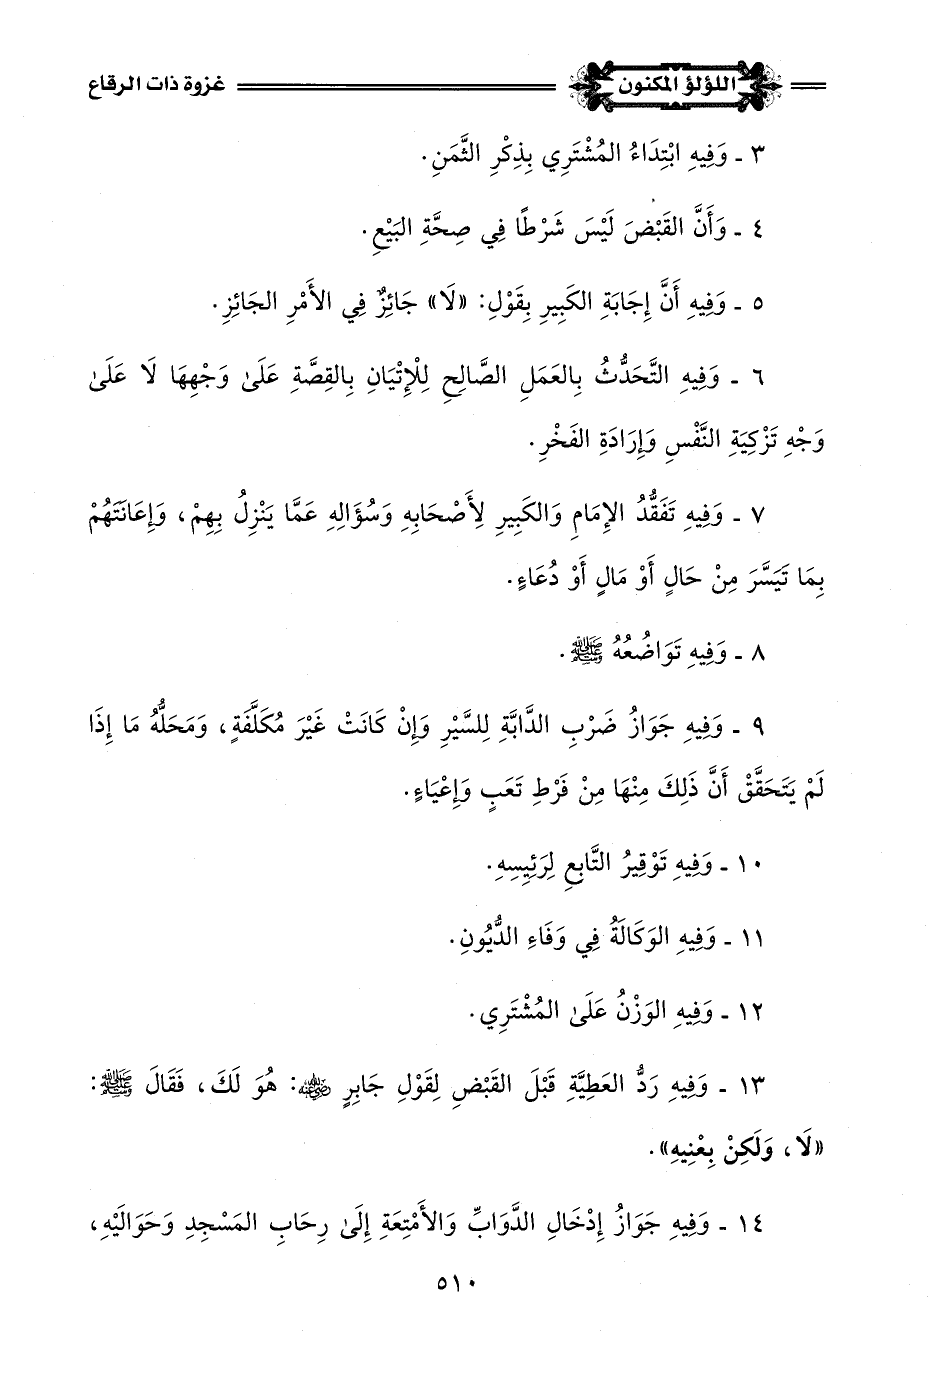 اللؤلؤ المكنون غزوة ذات الرقاع
٣ ـ وَفِيهِ ابْتِدَاءُ المُشْتَرِي بِذِكْرِ الثَّمَنِ.
٤ ـ وَأَنَّ القَبْضَ لَيْسَ شَرْطًا فِي صِحَّةِ البَيْعِ.
٥ ـ وَفِيهِ أَنَّ إِجَابَةِ الكَبِيرِ بِقَوْلِ: «لَا» جَائِزٌ فِي الأَمْرِ الجَائِزِ.
٦ ـ وَفِيهِ التَّحَدُّثُ بِالعَمَلِ الصَّالِحِ لِلْإِتْيَانِ بِالقِصَّةِ عَلَىٰ وَجْهِهَا لَا عَلَىٰ
وَجْهِ تَزْكِيَةِ النَّفْسِ وَإِرَادَةِ الفَخْرِ.
٧ ـ وَفِيهِ تَفَقُّدُ الإِمَامِ وَالكَبِيرِ لِأَصْحَابِهِ وَسُؤَالِهِ عَمَّا يَنْزِلُ بِهِمْ، وَإِعَانَتَهُمْ
بِمَا تَيَسَّرَ مِنْ حَالٍ أَوْ مَالٍ أَوْ دُعَاءٍ.
٨ ـ وَفِيهِ تَوَاضُعُهُ ﷺ.
٩ ـ وَفِيهِ جَوَازُ ضَرْبِ الدَّابَّةِ لِلسَّيْرِ وَإِنْ كَانَتْ غَيْرَ مُكَلَّفَةٍ، وَمَحَلُّهُ مَا إِذَا
لَمْ يَتَحَقَّقْ أَنَّ ذَلِكَ مِنْهَا مِنْ فَرْطِ تَعَبٍ وَإِعْيَاءٍ.
١٠ ـ وَفِيهِ تَوْقِيرُ التَّابِعِ لِرَئِيسِهِ.
١١ ـ وَفِيهِ الوَكَالَةُ فِي وَفَاءِ الدُّيُونِ.
١٢ ـ وَفِيهِ الوَزْنُ عَلَىٰ المُشْتَرِي.
١٣ ـ وَفِيهِ رَدُّ العَطِيَّةِ قَبْلَ القَبْضِ لِقَوْلِ جَابِرٍ رضي الله عنه: هُوَ لَكَ، فَقَالَ ﷺ:
«لَا، وَلَكِنْ بِعْنِيهِ».
١٤ ـ وَفِيهِ جَوَازُ إِدْخَالِ الدَّوَابِّ وَالأَمْتِعَةِ إِلَىٰ رِحَابِ المَسْجِدِ وَحَوَالَيْهِ،
٥١٠